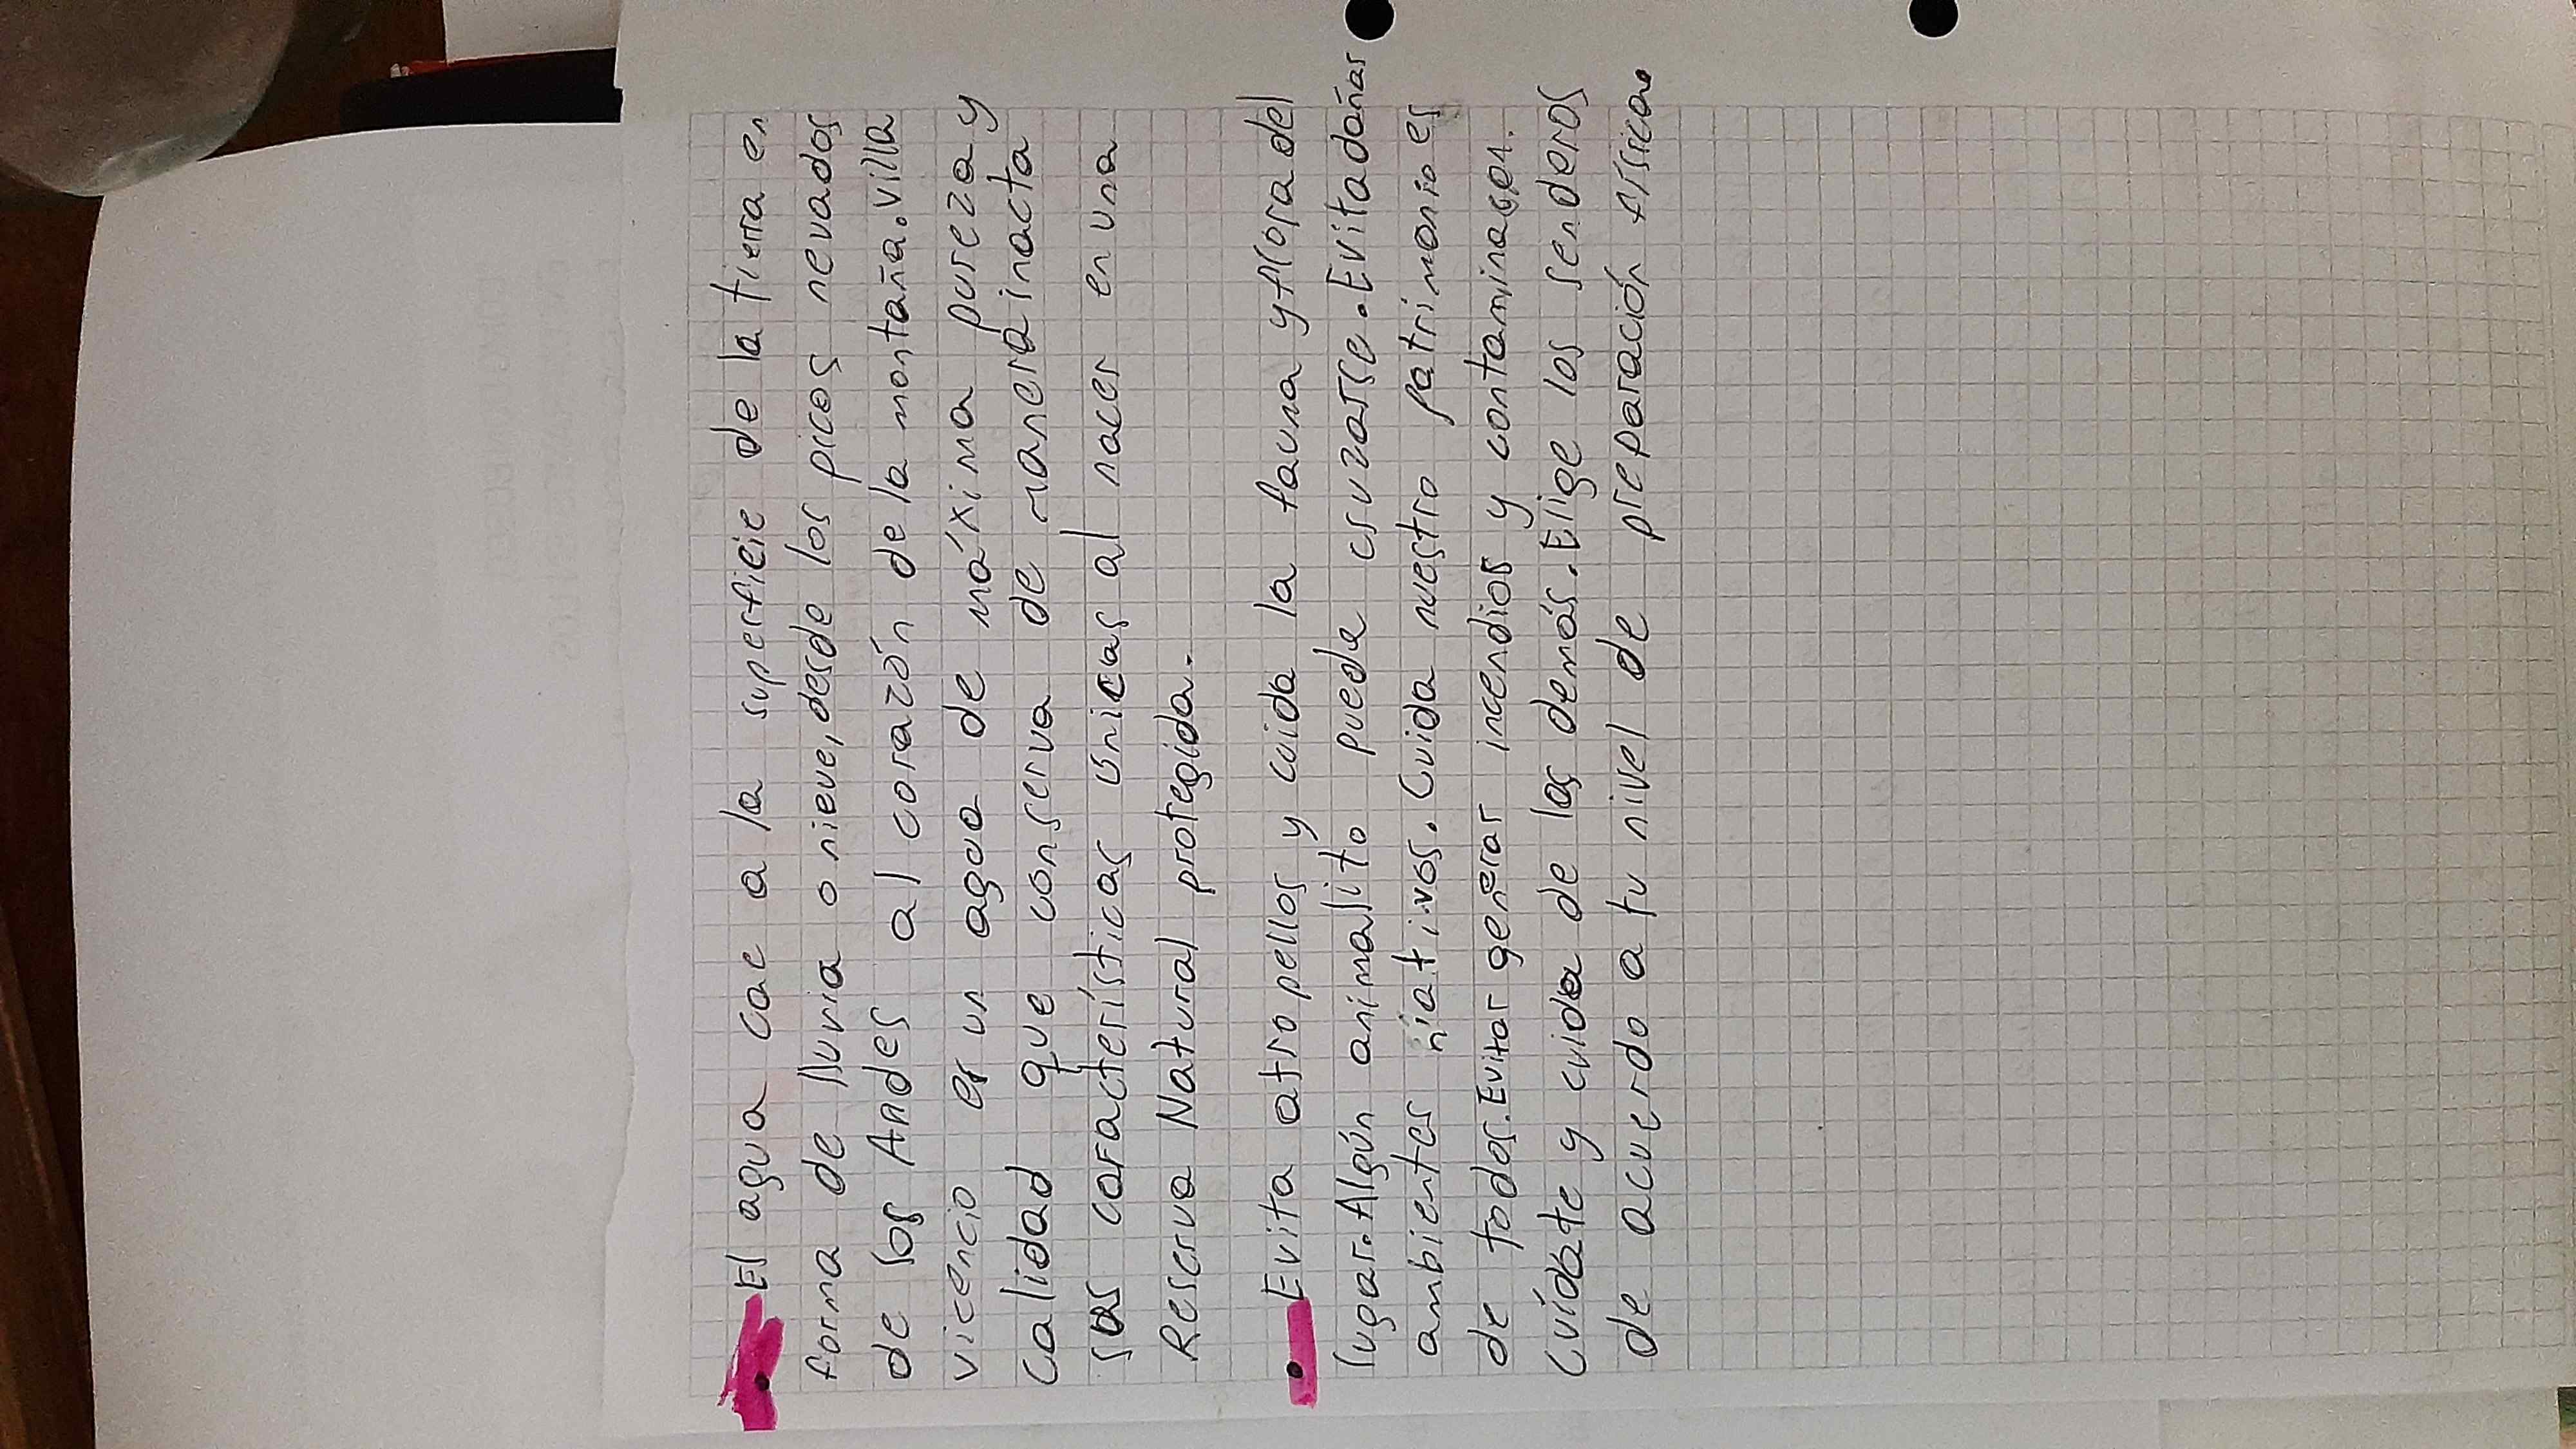 • El agua cae a la superficie de la tierra en
forma de lluvia o nieve, desde los picos nevados
de los Andes al corazón de la montaña. Villa
vicencio es un agua de máxima pureza y
calidad que conserva de manera inacta
sus características únicas al nacer en una
Reserva Natural protegida.
• Evita atropellos y cuida la fauna y flora del
lugar. Algún animalito puede cruzarse. Evita dañar
ambientes nativos. Cuida nuestro patrimonio es
de todos. Evitar generar incendios y contaminasen.
Cuídate y cuida de los demás. Elige los senderos
de acuerdo a tu nivel de preparación física.